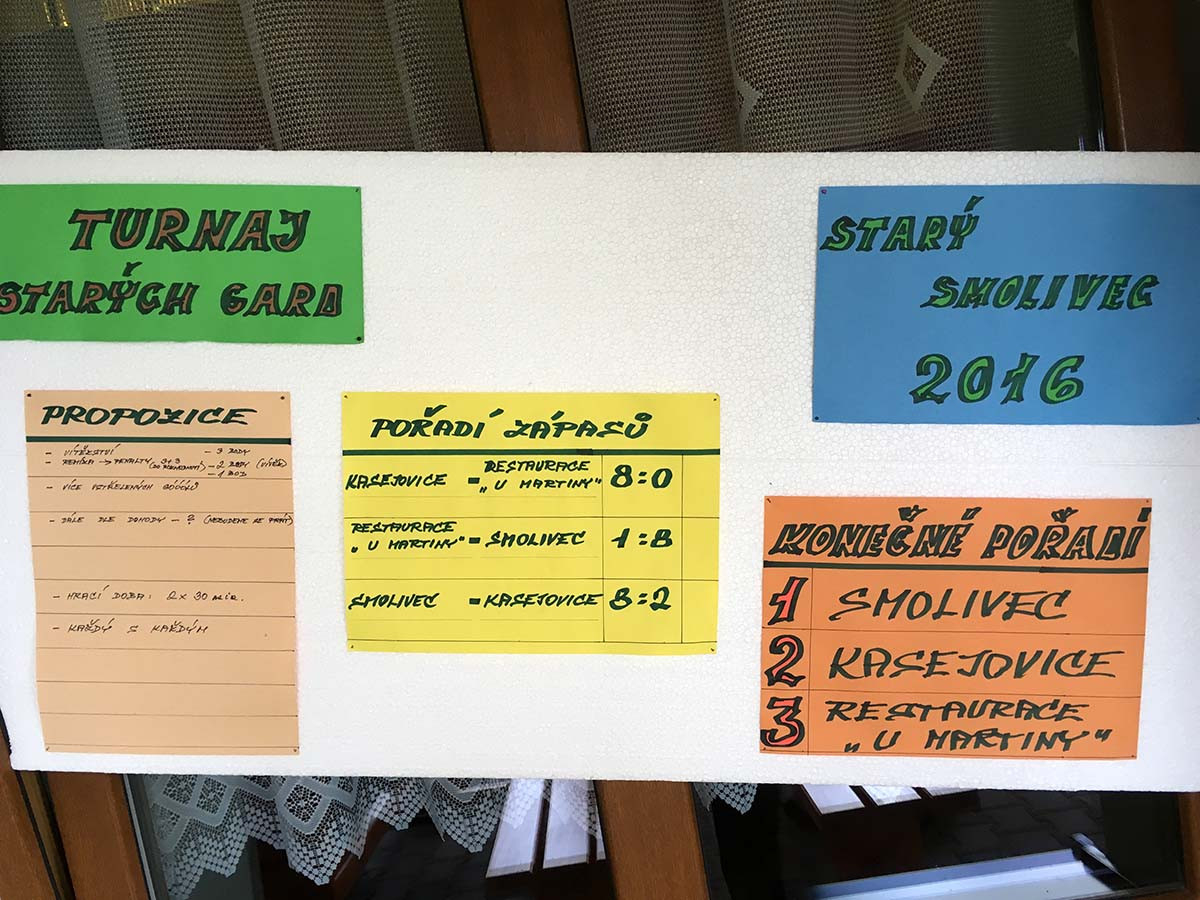 TURNAJ
STARÝCH GARD
STARÝ
SMOLIVEC
2016
PROPOZICE
- VÍTĚZSTVÍ - 3 BODY
- REMÍZA → PENALTY 3+3 - 2 BODY
- 1 BOD
- VÍCE VSTŘELENÝCH GÓÓÓLŮ
- DÁLE DLE DOHODY - ? (NEBUDEME SE PRÁT)
- HRACÍ DOBA: 2 x 30 min.
- KAŽDÝ S KAŽDÝM
POŘADÍ ZÁPASŮ
KASEJOVICE = RESTAURACE „U MARTINY" 8:0
RESTAURACE „U MARTINY" = SMOLIVEC 1:8
SMOLIVEC = KASEJOVICE 3:2
KONEČNÉ POŘADÍ
1 SMOLIVEC
2 KASEJOVICE
3 RESTAURACE
„U MARTINY"